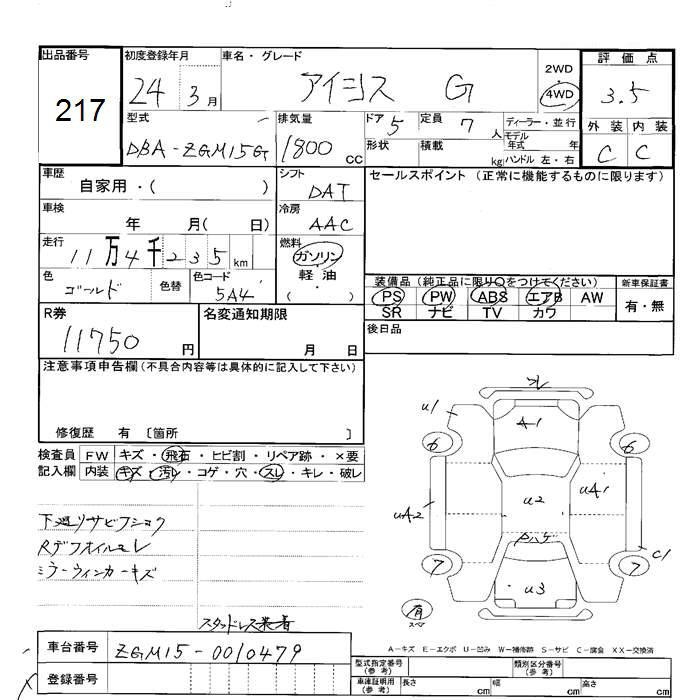 出品番号 初度登録年月 車名・グレード 評価点
217 24 3月 アイシス G 2WD 4WD 3.5
型式 排気量 ドア 5 定員 7人 ディーラー・並行 外装 内装
DBA-ZGM15G 1800cc 形状 積載 kg モデル年式 年 ハンドル 左・右 C C
車歴 自家用・( ) シフト DAT セールスポイント (正常に機能するものに限ります)
車検 年 月( 日) 冷房 AAC
走行 11万4千235km 燃料 ガソリン・軽油・( )
色 ゴールド 色替 色コード 5A4
装備品(純正品に限り○をつけてください) 新車保証書
PS PW ABS エアB AW 有・無
SR ナビ TV カワ
R券 11750円 名変通知期限 月 日 後日品
注意事項申告欄(不具合内容等は具体的に記入して下さい)
修復歴 有 〔箇所 〕
検査員 FW キズ・飛石・ヒビ割・リペア跡・×要
記入欄 内装 キズ・汚レ・コゲ・穴・スレ・キレ・破レ
下廻リサビフショク
Rデフオイルモレ
ミラーウィンカーキズ
スタッドレス装着
フレ
U1 A-1
6 6
UA2 U2 UA1
Pハゲ
7 7 C1
U3
有 スペア
A-キズ E-エクボ U-凹み W-補修跡 S-サビ C-腐食 XX-交換済
車台番号 ZGM15-0010479
登録番号
型式指定番号(参考) 類別区分番号(参考)
車庫証明用(参考) 長さ cm 幅 cm 高さ cm